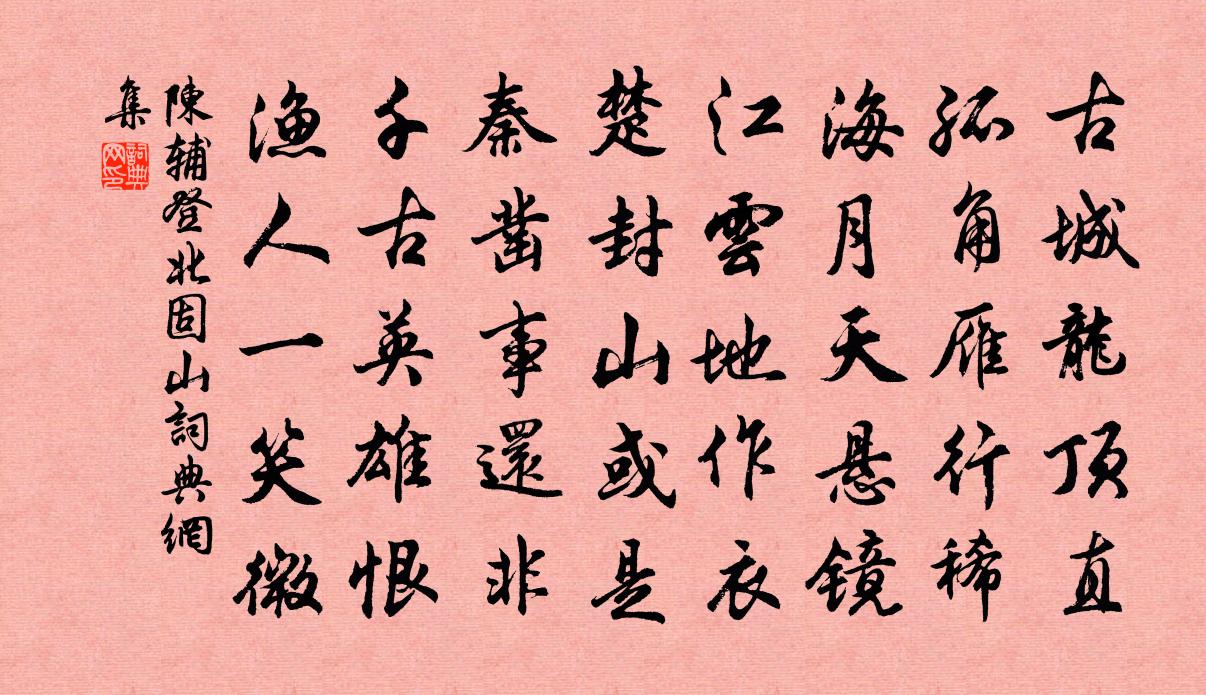 古城龍頂直
孤角雁行稀
海月天悬镜
江雲地作衣
楚封山或是
秦凿事還非
千古英雄恨
渔人一笑微
陳辅登北固山詞典網
集
詞典
网印